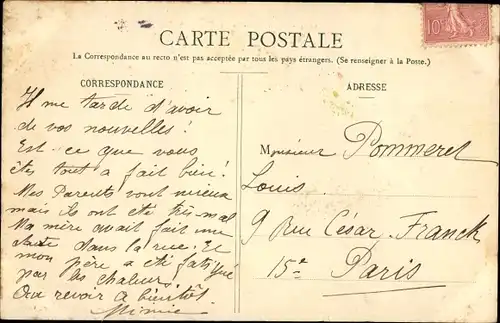 CARTE POSTALE
La Correspondance au recto n'est pas acceptée par tous les pays étrangers. (Se renseigner à la Poste.)
CORRESPONDANCE
Il me tarde d'avoir
de vos nouvelles!
Est-ce que vous
êtes tout a fait bien!
Mes Parents vont mieux
mais ils ont été très mal
Ma mère avait fait une
chute dans la rue. Et
mon père a été fatigué
par les chaleurs.
Au revoir à bientôt.
Mimie
ADRESSE
Monsieur Pommeret
Louis
9 Rue César-Franck
15e Paris
10c